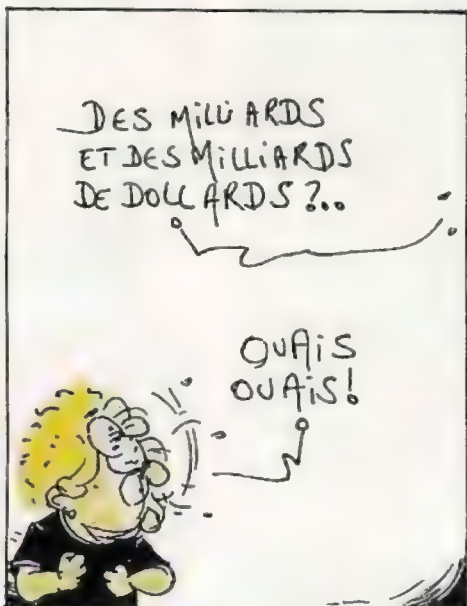 DES MILLIARDS
ET DES MILLIARDS
DE DOLLARDS ?..
OUAIS
OUAIS!